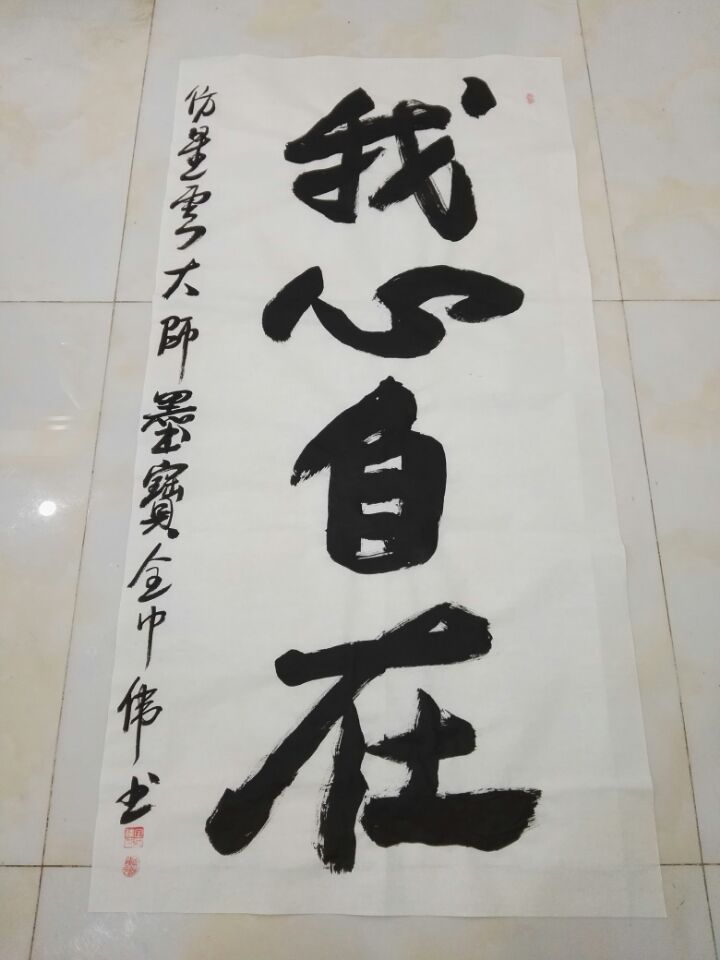 我心自在
仿星雲大師墨寶全中伟书